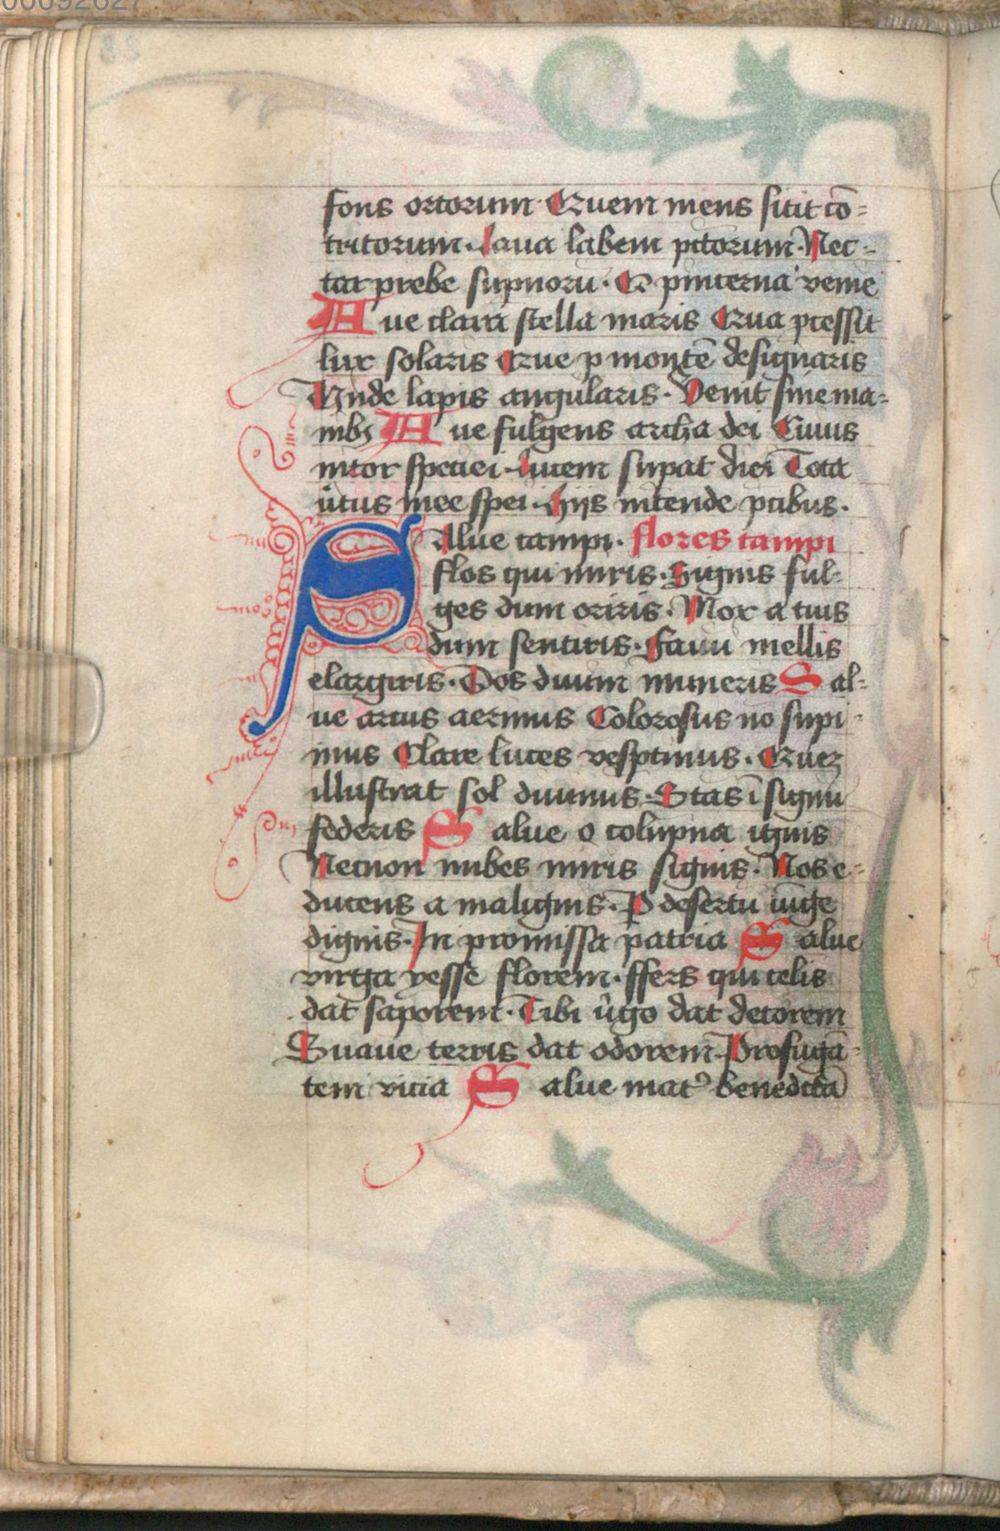 fons ortorum Quem mens sitit co̅=
tritorum. Laua labem pctorum. Nec=
tar prebe supnoru. O pincerna veme
Aue clara stella maris Qua pcessit
lux solaris Que p monte̅ designaris
Unde lapis angularis. Venit sine ma=
nibꝫ Aue fulgens archa dei Cuius
nitor speciei. Lucem supat diei Tota
uͥtus mee spei. Hijs intende pcibus.
Salue campi. flores campi
flos qui miris. Signis ful=
ges dum oriris. Mox a tuis
dum sentiris. Fauu mellis
elargiris. Dos diuini muneris Sal=
ue arcus aerinus Colorosus no supi=
nus Clare luces vesptinus. Quez
illustrat sol diuinus. Stas i̅ signu
federis Salue o colupna ignis
Necnon nubes miris signis. Nos e=
ducens a malignis. P desertu iu̅ge
dignis. In promissa patria Salue
virga yesse florem. ffers qui celis
dat saporem. Tibi uͥgo dat decorem
Suaue terris dat odorem. Profuga̅=
tem vicia Salue matꝰ benedicta